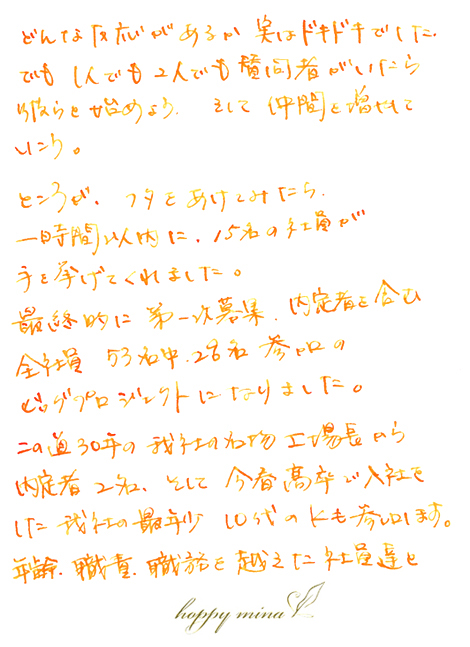 どんな反応があるか 実はドキドキでした。
でも 1人でも2人でも賛同者がいたら
彼らと始めよう. そして 仲間を増やして
いこう。
ところが、フタをあけてみたら、
一時間以内に、15名の社員が
手を挙げてくれました。
最終的に 第一次募集、内定者を含む
全社員 53名中、28名 参加の
ビッグプロジェクトになりました。
この道30年の我社の名物 工場長から
内定者 2名、そして 今春高卒で入社を
した 我社の最年少 10代のKも参加します。
年齢、職責、職話を越えた社員達と
hoppy mina